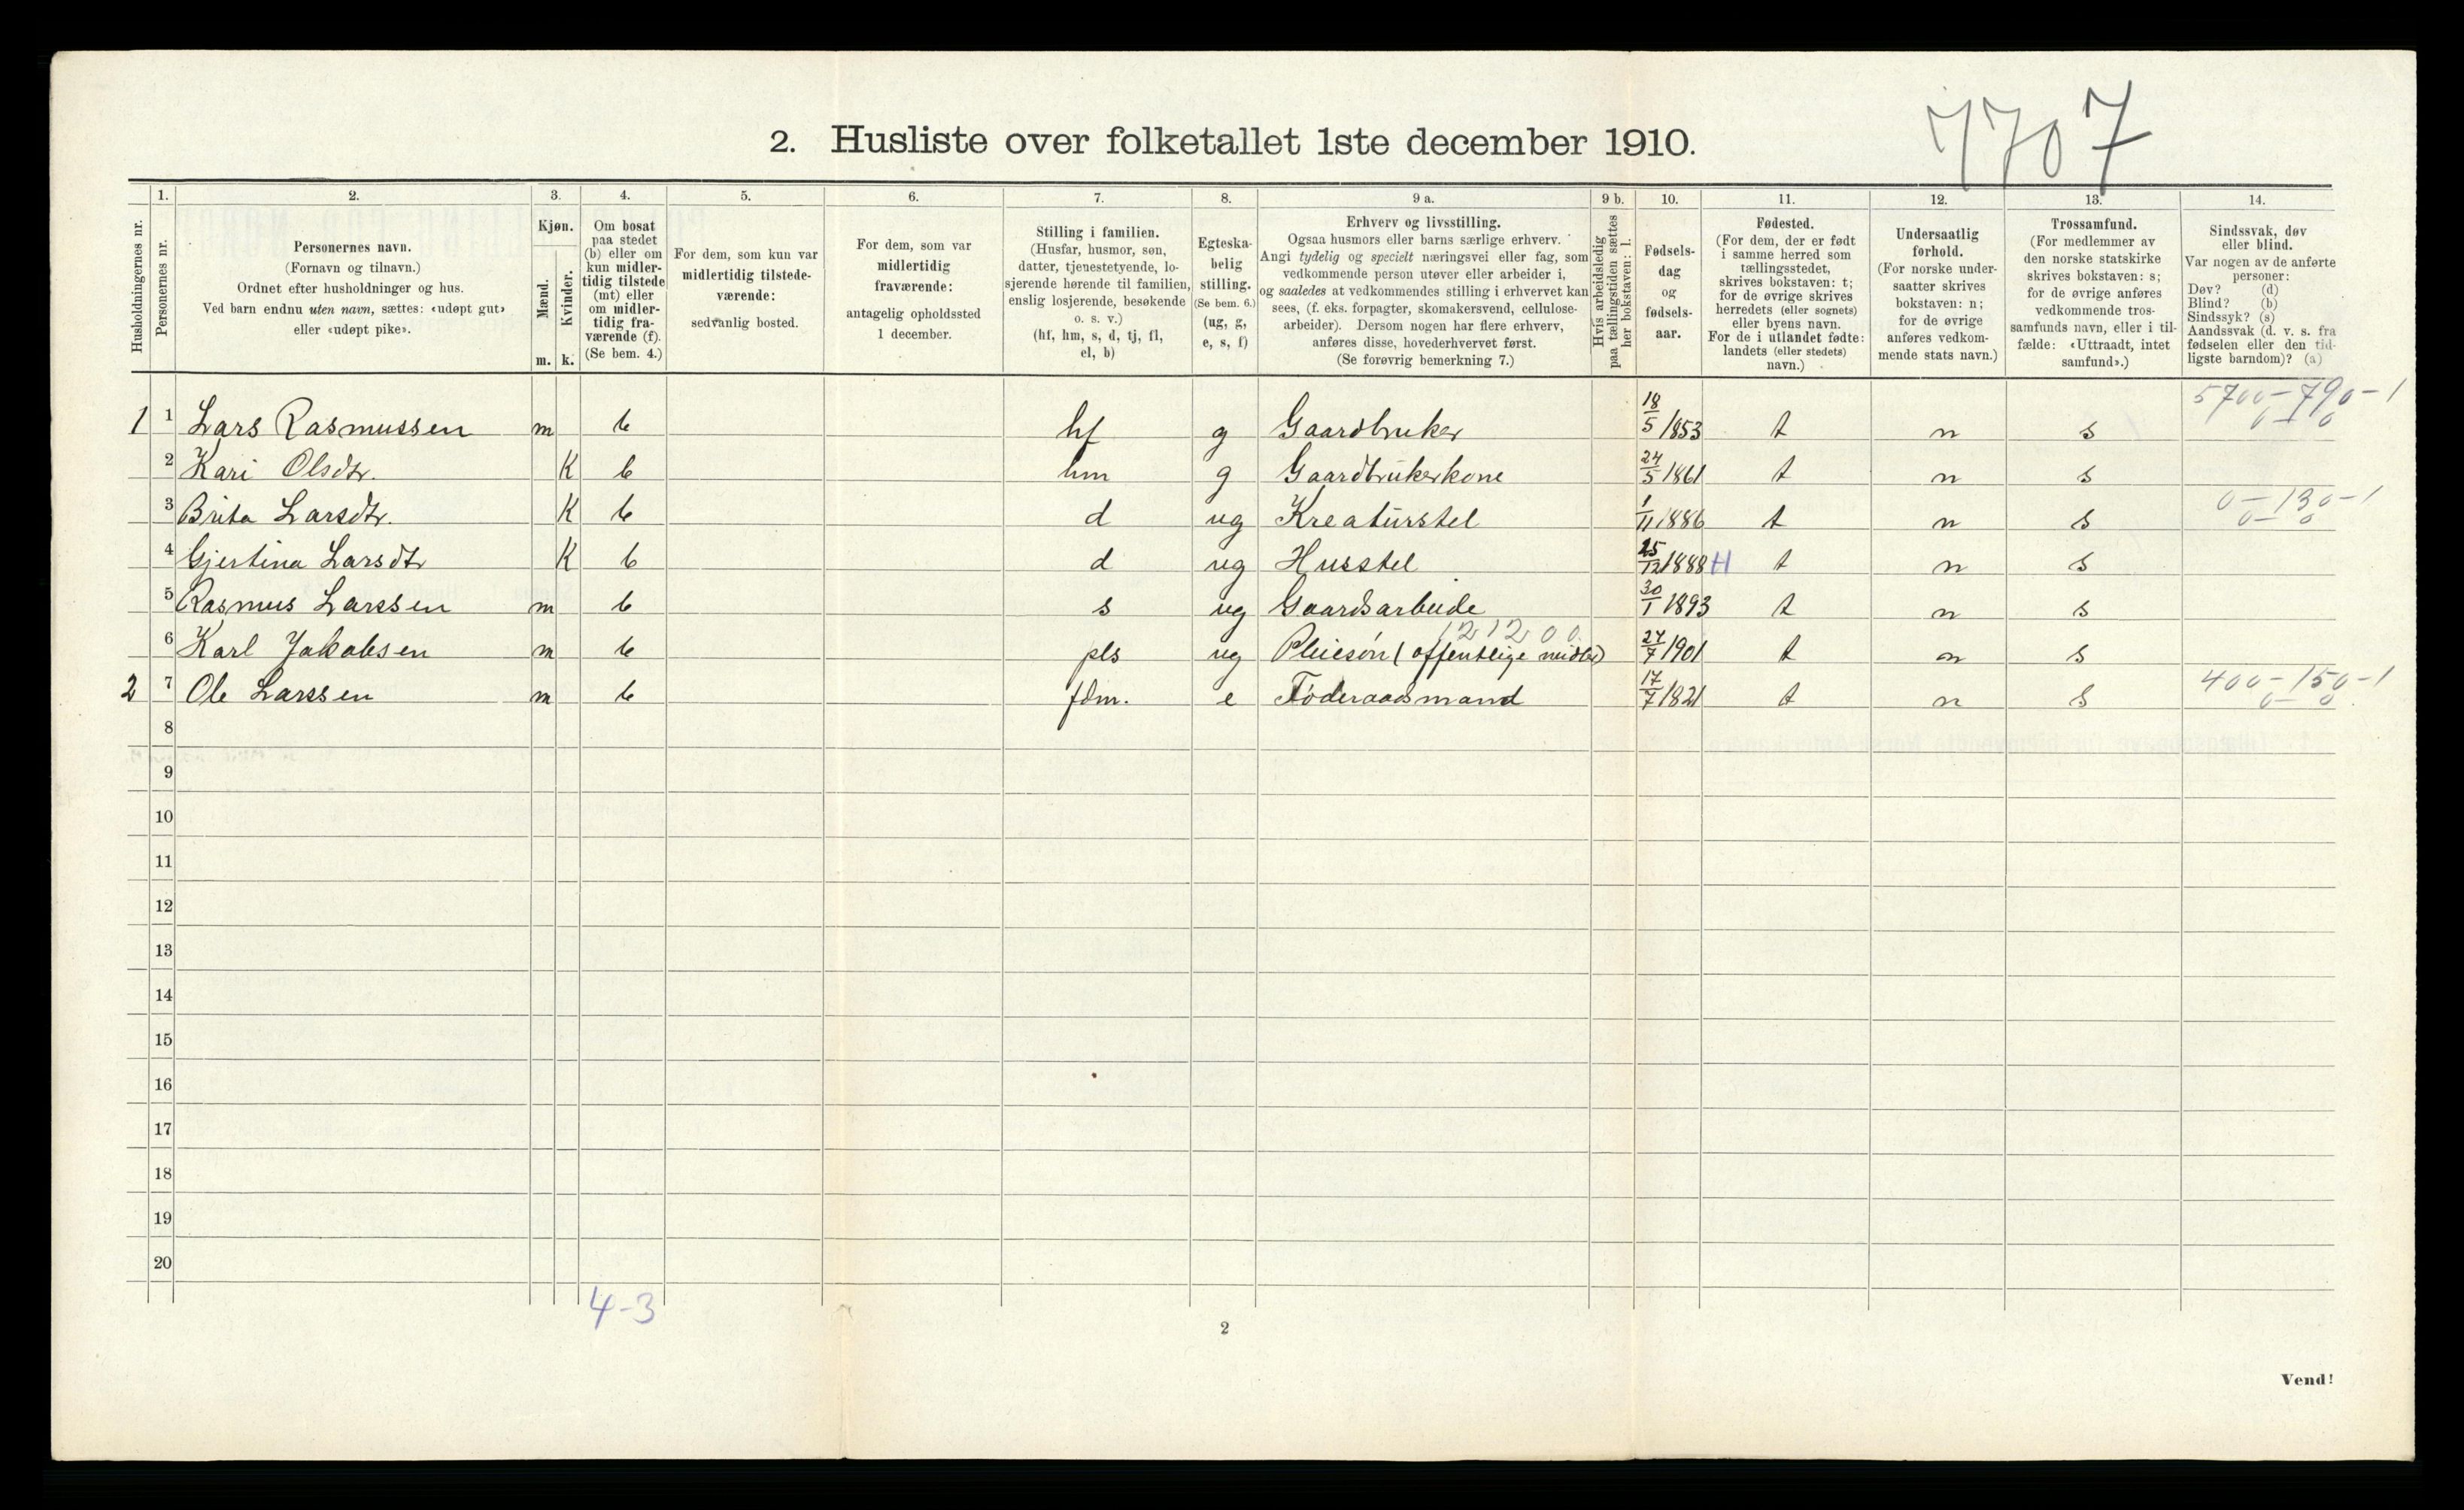 7707
2. Husliste over folketallet 1ste december 1910.
1. 2. 3. 4. 5. 6. 7. 8. 9 a. 9 b. 10. 11. 12. 13. 14.
Husholdningernes nr.
Personernes nr.
Personernes navn.
(Fornavn og tilnavn.)
Ordnet efter husholdninger og hus.
Ved barn endnu uten navn, sættes: «udøpt gut»
eller «udøpt pike».
Kjøn.
Mænd.
Kvinder.
m. k.
Om bosat
paa stedet
(b) eller om
kun midler-
tidig tilstede
(mt) eller
om midler-
tidig fra-
værende (f).
(Se bem. 4.)
For dem, som kun var
midlertidig tilstede-
værende:
sedvanlig bosted.
For dem, som var
midlertidig
fraværende:
antagelig opholdssted
1 december.
Stilling i familien.
(Husfar, husmor, søn,
datter, tjenestetyende, lo-
sjerende hørende til familien,
enslig losjerende, besøkende
o. s. v.)
(hf, hm, s, d, tj, fl,
el, b)
Egteska-
belig
stilling.
(Se bem. 6.)
(ug, g,
e, s, f)
Erhverv og livsstilling.
Ogsaa husmors eller barns særlige erhverv.
Angi tydelig og specielt næringsvei eller fag, som
vedkommende person utøver eller arbeider i,
og saaledes at vedkommendes stilling i erhvervet kan
sees, (f. eks. forpagter, skomakersvend, cellulose-
arbeider). Dersom nogen har flere erhverv,
anføres disse, hovederhvervet først.
(Se forøvrig bemerkning 7.)
Hvis arbeidsledig
paa tællingstiden sættes
her bokstaven: l.
Fødsels-
dag
og
fødsels-
aar.
Fødested.
(For dem, der er født
i samme herred som
tællingsstedet,
skrives bokstaven: t;
for de øvrige skrives
herredets (eller sognets)
eller byens navn.
For de i utlandet fødte:
landets (eller stedets)
navn.)
Undersaatlig
forhold.
(For norske under-
saatter skrives
bokstaven: n;
for de øvrige
anføres vedkom-
mende stats navn.)
Trossamfund.
(For medlemmer av
den norske statskirke
skrives bokstaven: s;
for de øvrige anføres
vedkommende tros-
samfunds navn, eller i til-
fælde: «Uttraadt, intet
samfund».)
Sindssvak, døv
eller blind.
Var nogen av de anførte
personer:
Døv? (d)
Blind? (b)
Sindssyk? (s)
Aandssvak (d. v. s. fra
fødselen eller den tid-
ligste barndom)? (a)
5700-790-1
0-0
1 1 Lars Rasmussen m b hf g Gaardbruker 18/5 1853 t n s
2 Kari Olsdtr. K b hm g Gaardbrukerkone 24/5 1861 t n s
0-130-1
0-0
3 Brita Larsdtr. K b d ug Kreaturstel 1/11 1886 t n s
4 Gjertina Larsdtr K b d ug Husstel 25/12 1888 H t n s
5 Rasmus Larssen m b s ug Gaardsarbeide 30/1 1893 t n s
121200
6 Karl Jakobsen m b pls ug Pleiesøn (offentlige midler) 27/7 1901 t n s
400-150-1
0-0
2 7 Ole Larssen m b fdm. e Føderaadsmand 17/7 1821 t n s
8
9
10
11
12
13
14
15
16
17
18
19
20
4-3
2
Vend!